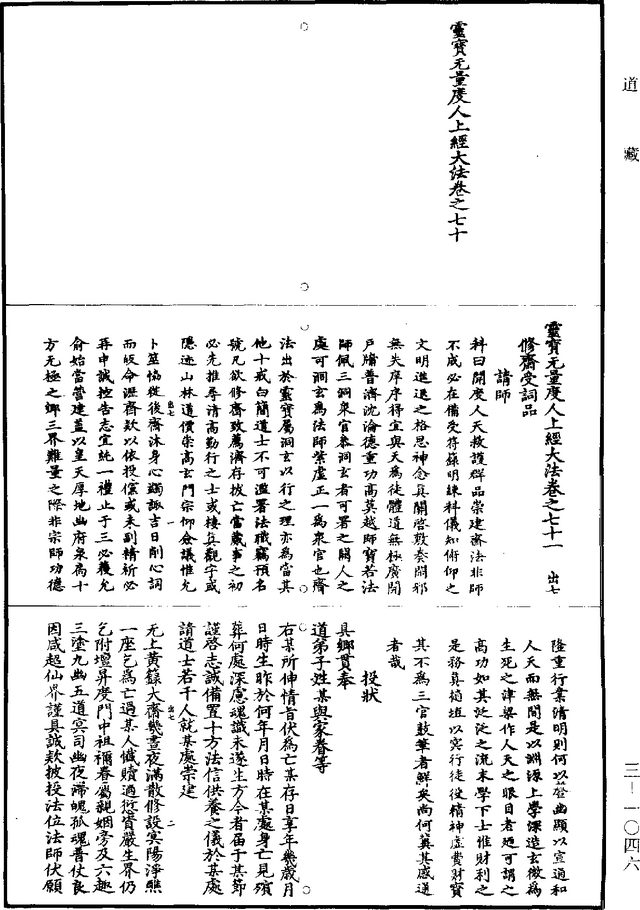 道藏
靈寶无量度人上經大法卷之七十
靈寶无量度人上經大法卷之七十一 出七
修齋受詞品
請師
科曰開度人天救護群品崇建齋法非師
不成必在備受符籙明練科儀知俯仰之
文明進退之格思神念真關啓敷奏閑邪
無失庠序得宜與天為徒體道無極廣開
戶牖普濟沈淪德重功高莫越師寶若法
師佩三洞衆官參洞玄者可署之關人之
處可洞玄為法師紫虛正一為衆官也齋
法出於靈寶屬洞玄以行之理亦為當其
他十戒白簡道士不可濫署法職竊預名
號凡欲修齋致薦濟存拔亡當蕆事之初
必先推尋清高勤行之士或棲真觀宇或
隱迹山林道價崇高玄門宗仰僉議惟允
卜筮恊從後齋沐身心蠲諏吉日削心詞
而皈命瀝齋欵以依投儻或未副精祈必
再申誠控告志宜純一禮止于三必獲允
俞始當營建蓋以皇天厚地幽府泉扃十
方无極之鄉三界難量之際非宗師功德
隆重行業清明則何以登幽顯以宣通和
人天而無間是以淵源上學深造玄微為
生死之津梁作人天之眼目者迺可謂之
高功如其泛泛之流末學下士惟財利之
是務真蹈俎以窺行徒役精神虛費財寶
其不為三官鼓筆者鮮矣尚何冀其感通
者哉
投狀
具鄉貫奉
道弟子姓某與家眷等
右某所伸情旨伏為亡某存日享年幾歲月
日時生昨於何年月日時在某處身亡見殯
葬何處深慮魂識未遂生方今者屆于某節
謹啓志誠備置十方法信供養之儀於某處
請道士若干人就某處崇建
无上黃籙大齋幾晝夜滿散修設冥陽淨醮
一座乞為亡過某人懺贖過愆資嚴生界仍
乞附壇昇度門中祖禰眷屬親姻旁及六趣
三塗九幽五道冥司幽夜滯魄孤魂普仗良
因咸超仙界謹具誠欵披投法位法師伏願
三－一〇四六